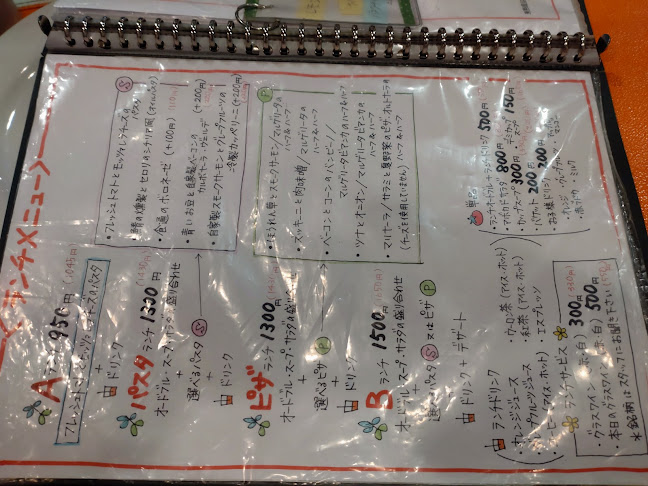 ランチメニュー
A ランチ 950円 (1045円)
フレッシュトマトとモッツァレラチーズのパスタ
+
ドリンク
パスタ ランチ 1300円
オードブル・スープ・サラダの盛り合わせ
+
選べるパスタ S
+
ドリンク
ピザ ランチ 1300円
オードブル・スープ・サラダの盛り合わせ
+
選べるピザ P
+
ドリンク
B ランチ 1500円 (1650円)
オードブル・スープ・サラダの盛り合わせ
+
選べるパスタ S 又はピザ P
+
ドリンク + デザート
ランチドリンク
・オレンジジュース
・グレープフルーツジュース
・コーヒー(アイス・ホット)
・ウーロン茶(アイス・ホット)
・紅茶(アイス・ホット)
・エスプレッソ
ランチサービス
・グラスワイン 300円
本日のグラスワイン 500円
※銘柄はスタッフにお聞き下さい
S
・フレッシュトマトとモッツァレラチーズのパスタ
・鯖の燻製とセロリのシチリア風
・食通のボロネーゼ (+100円)
・青い豆と自家製ベーコンのカルボナーラ・ヴェルデ (+200円)
・自家製スモークサーモンとグレープフルーツの冷製カッペリーニ (+200円)
P
・ほうれん草とスモークサーモン/マルゲリータのハーフ&ハーフ
・ズッキーニと肉味噌/マルゲリータのハーフ&ハーフ
・ベーコンとコーンのバンビーノ/マルゲリータビアンカのハーフ&ハーフ
・ツナとオニオン/マルゲリータビアンカのハーフ&ハーフ
・マリナーラ/サラミと夏野菜のピザ
(チーズを使用していません) ハーフ&ハーフ
単品
500円
800円
カップスープ 300円
150円
バゲット 200円
お子様ドリンク 200円
・オレンジ